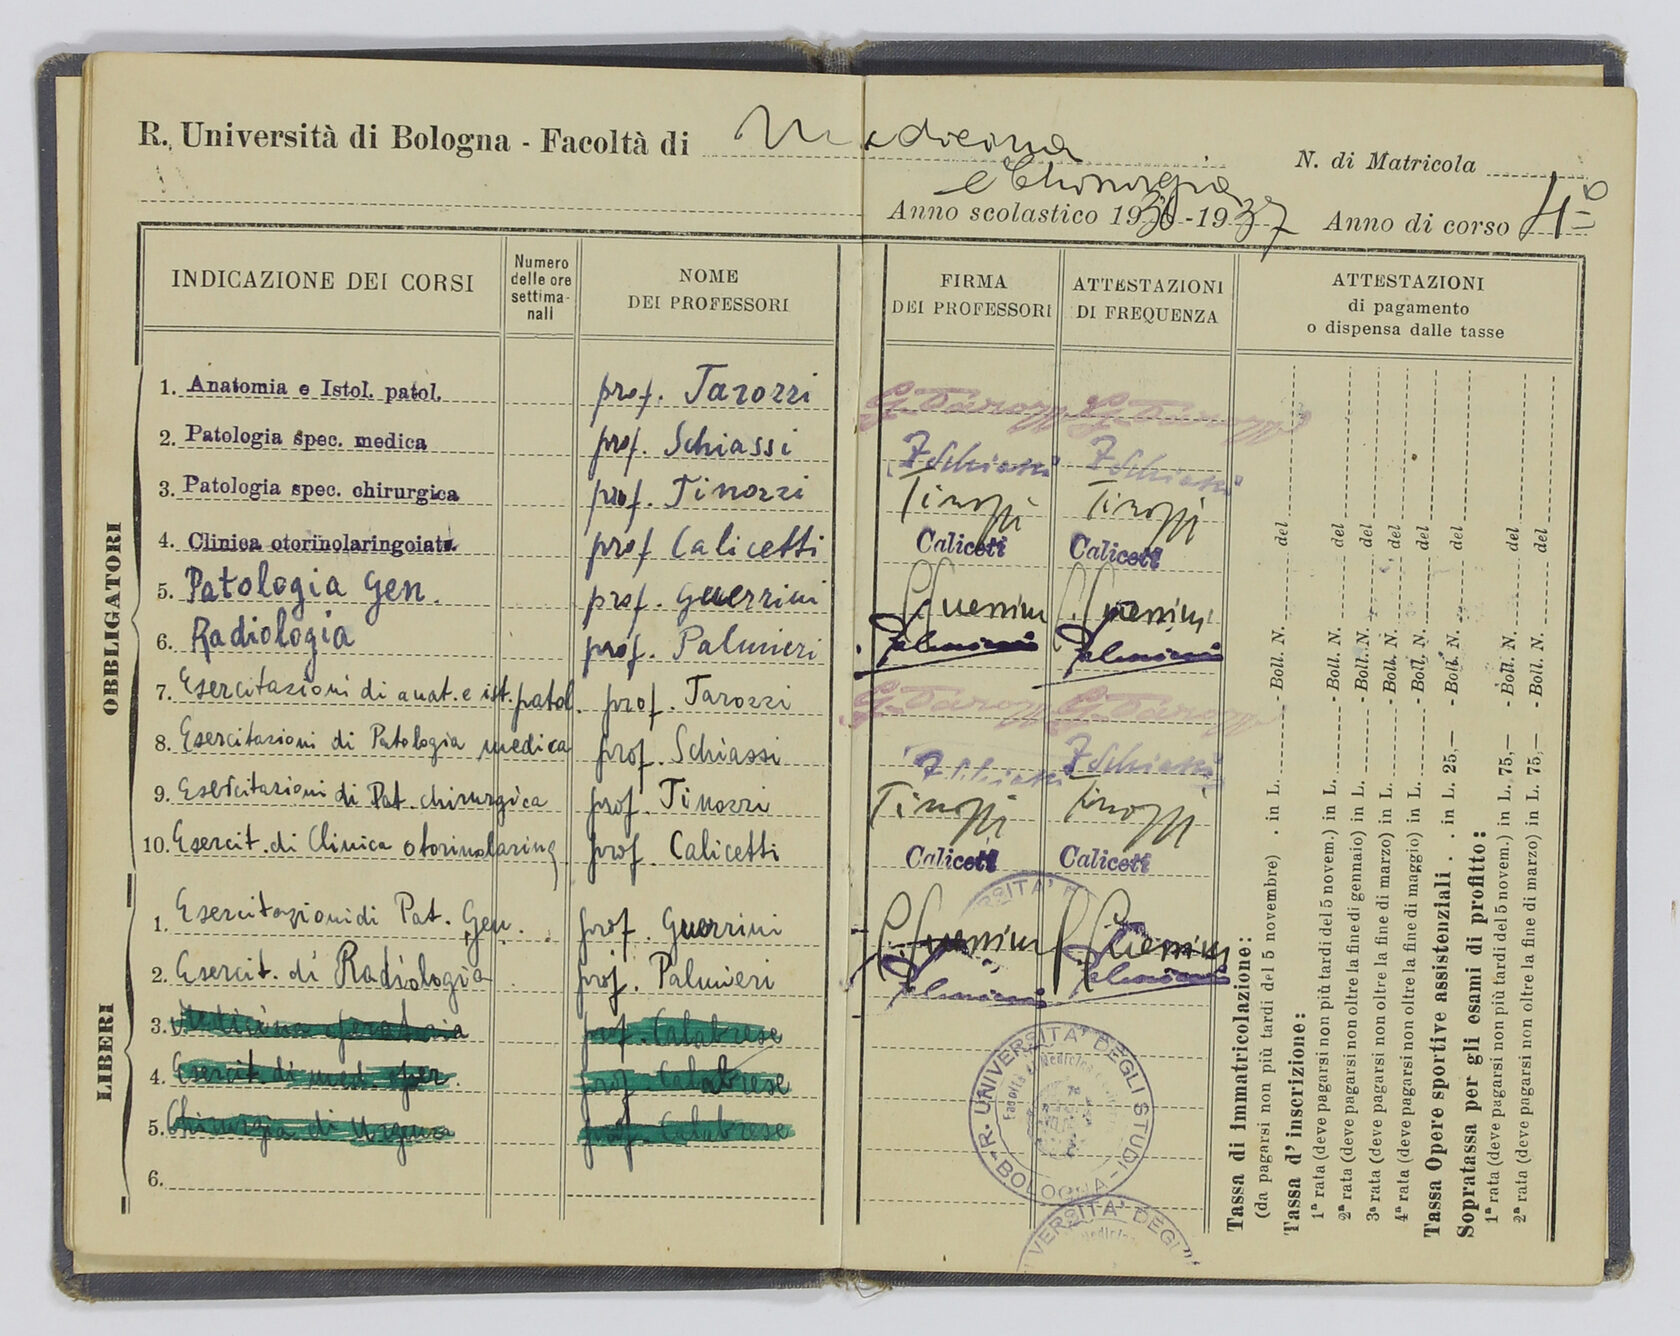 R. Università di Bologna - Facoltà di Medicina
e Chirurgia
N. di Matricola
Anno scolastico 1936-1937 Anno di corso 4º
INDICAZIONE DEI CORSI
Numero delle ore settima-nali
NOME DEI PROFESSORI
FIRMA DEI PROFESSORI
ATTESTAZIONI DI FREQUENZA
ATTESTAZIONI di pagamento o dispensa dalle tasse
OBBLIGATORI
1. Anatomia e Istol. patol. prof. Tarozzi G. Tarozzi G. Tarozzi
2. Patologia spec. medica prof. Schiassi Schiassi Schiassi
3. Patologia spec. chirurgica prof. Tinozzi Tinozzi Tinozzi
4. Clinica otorinolaringoiat. prof Calicetti Caliceti Caliceti
5. Patologia Gen. prof. Guerrini G. Guerrini G. Guerrini
6. Radiologia prof. Palmieri Palmieri Palmieri
7. Esercitazioni di anat. e ist. patol. prof. Tarozzi G. Tarozzi G. Tarozzi
8. Esercitazioni di Patologia medica prof. Schiassi Schiassi Schiassi
9. Esercitazioni di Pat. chirurgica prof. Tinozzi Tinozzi Tinozzi
10. Esercit. di Clinica otorinolaring. prof. Calicetti Caliceti Caliceti
LIBERI
1. Esercitazioni di Pat. Gen. prof. Guerrini G. Guerrini G. Guerrini
2. Esercit. di Radiologia prof. Palmieri Palmieri Palmieri
3. Medicina operatoria prof. Calabrese
4. Esercit. di med. oper. prof. Calabrese
5. Chirurgia di Urgenza prof. Calabrese
6.
R. UNIVERSITA' DEGLI STUDI - BOLOGNA -
VERSITA' DEGLI
Tassa di immatricolazione:
(da pagarsi non più tardi del 5 novembre) . in L. - Boll. N. del
Tassa d'inscrizione:
1ª rata (deve pagarsi non più tardi del 5 novem.) in L. - Boll. N. del
2ª rata (deve pagarsi non oltre la fine di gennaio) in L. - Boll. N. del
3ª rata (deve pagarsi non oltre la fine di marzo) in L. - Boll. N. del
4ª rata (deve pagarsi non oltre la fine di maggio) in L. - Boll. N. del
Tassa Opere sportive assistenziali . . in L. 25,— - Boll. N. del
Sopratassa per gli esami di profitto:
1ª rata (deve pagarsi non più tardi del 5 novem.) in L. 75,— - Boll. N. del
2ª rata (deve pagarsi non oltre la fine di marzo) in L. 75,— - Boll. N. del